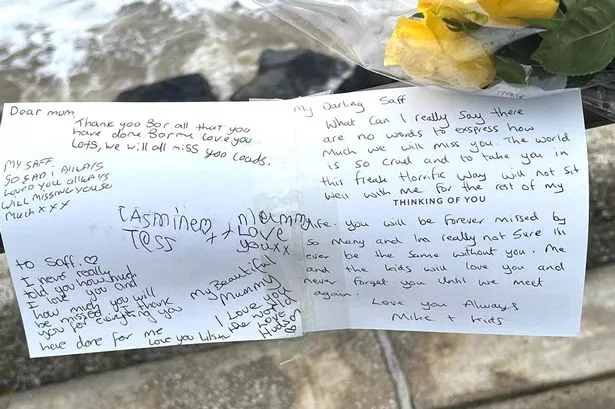 Dear mum,
Thank you for all that you
have done for me love you
Lots, we will all miss you loads.
MY SAFF.
SO SAD I ALWAYS
LOVED YOU ALLWAYS
WILL MISS YOU
MUCH XXX
Jasmine
Tess
x x
Mummy
Love
you xx
to Saff.
I never really
told you how much
I love you and
how much you will
be missed thank
you for everything you
have done for me
Love you
My Beautiful
Mummy
I Love You
the world
Love
Hudson
My Darling Saff
What Can I really Say there
are no words to exspress how
Much we will miss you. The world
is so Cruel and to take you in
this freak Horrific way will not Sit
well with me for the rest of my
THINKING OF YOU
life. You will be forever missed by
so many and Im really not Sure Ill
ever be the Same without you. Me
and the kids will love you and
never forget you Until we meet
again.
Love you Always
Mike + kids